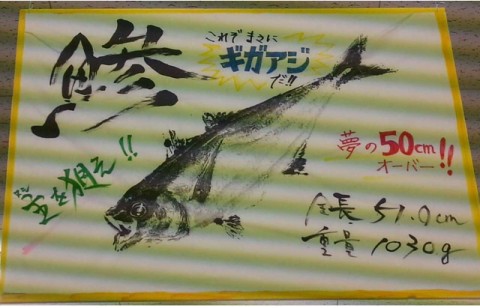 鯵
これぞ まさに
ギガアジ
だ!!
夢の50cm
オーバー!!
を狙え!!
全長 51.0cm
重量 1030g